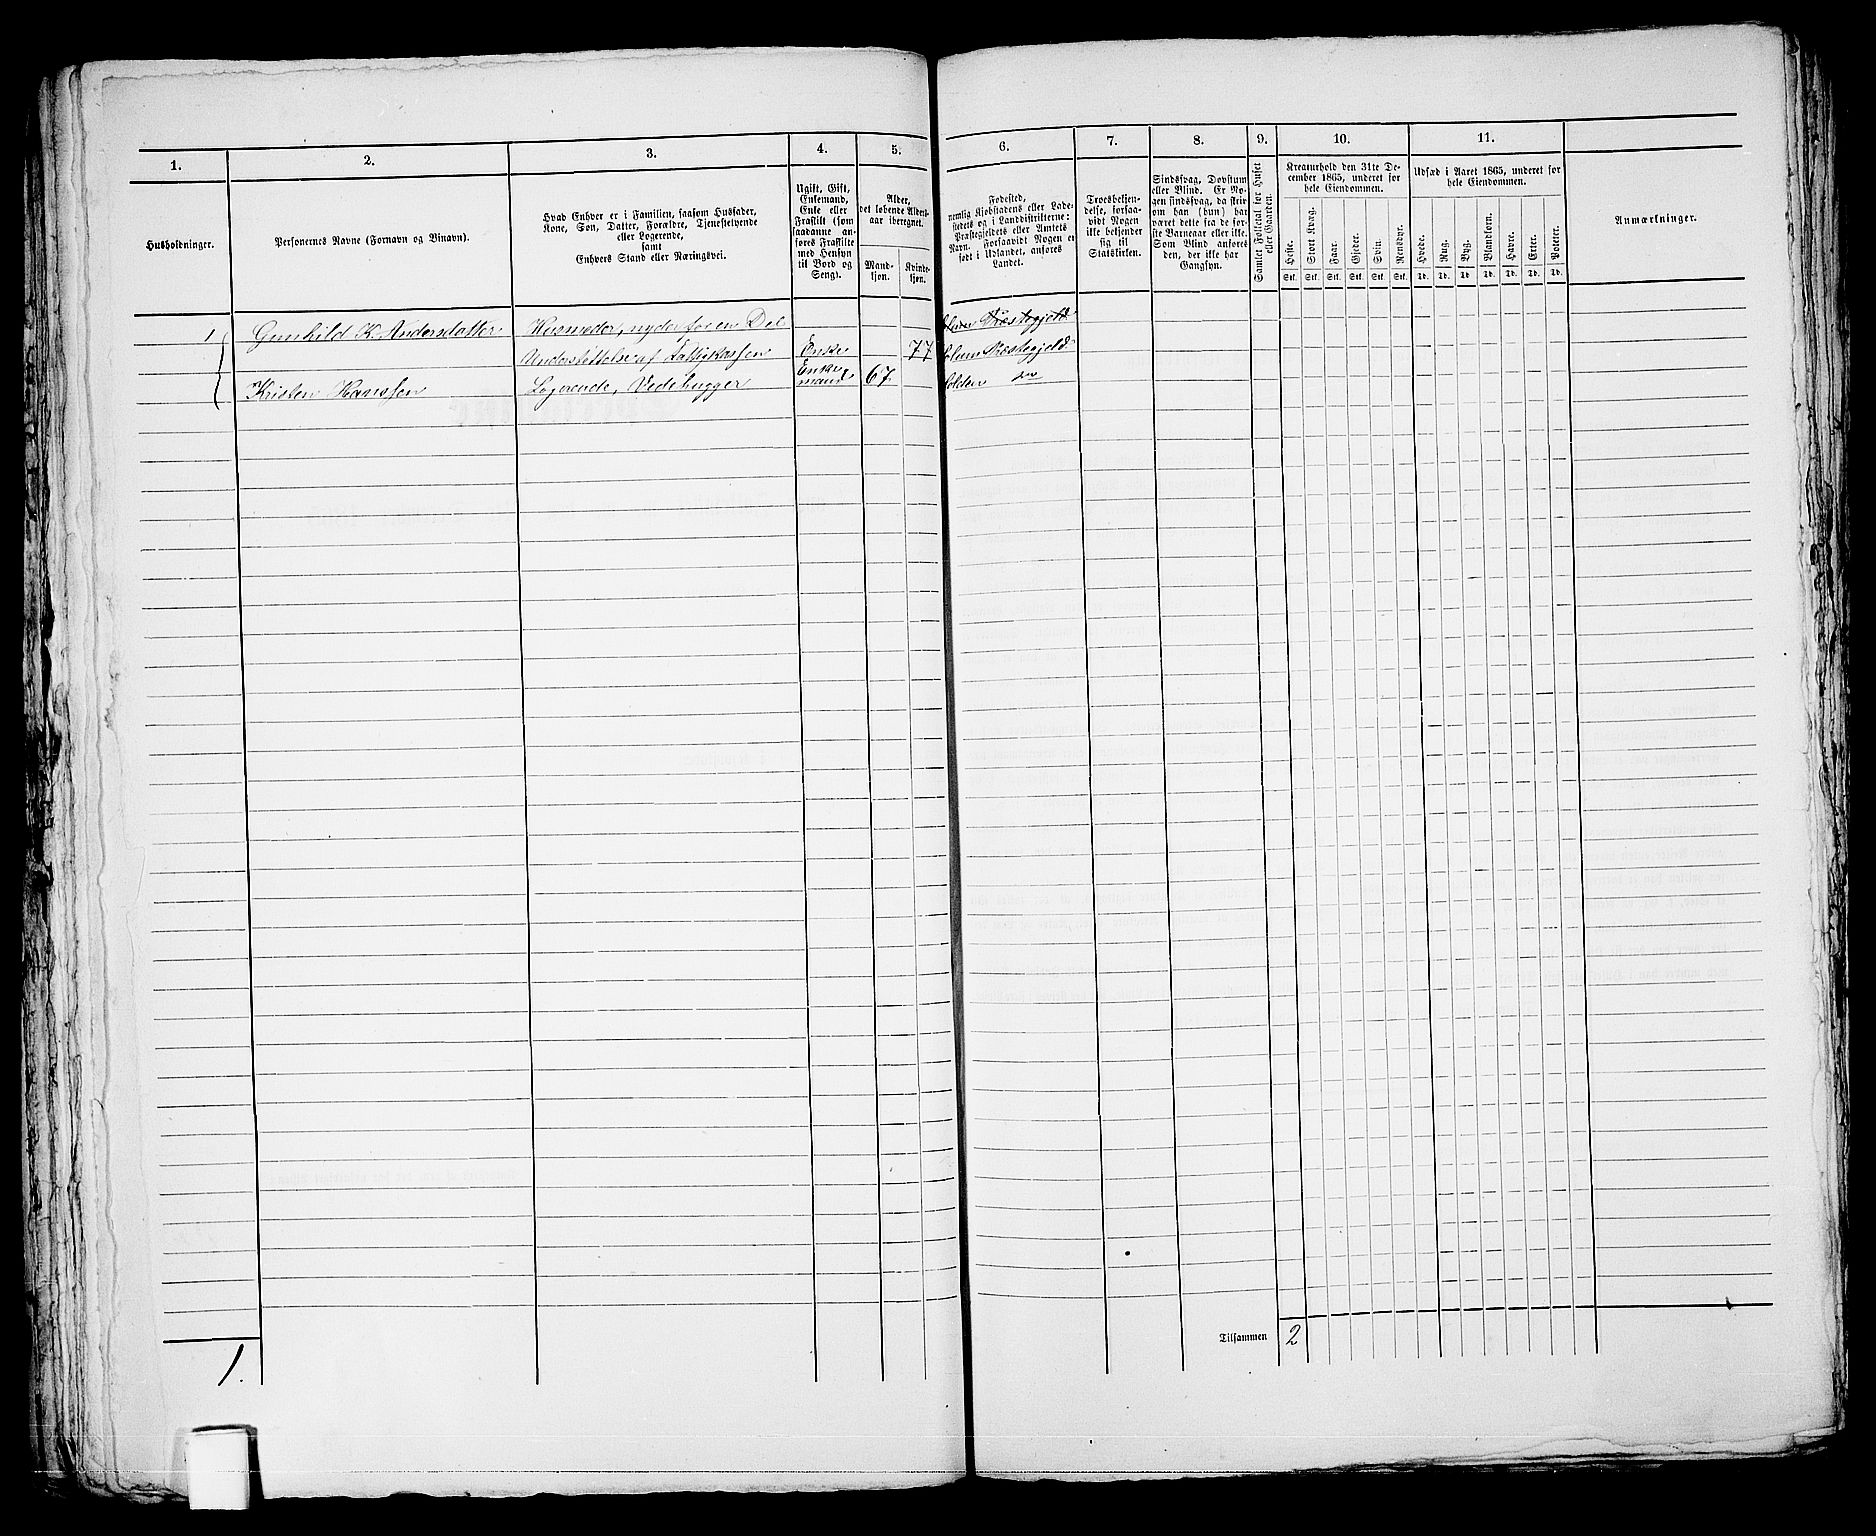 1. 2. 3. 4. 5. 6. 7. 8. 9. 10. 11.
Husholdninger.
Personernes Navne (Fornavn og Binavn).
Hvad Enhver er i Familien, saasom Husfader,
Kone, Søn, Datter, Forældre, Tjenestetyende
eller Logerende,
samt
Enhvers Stand eller Næringsvei.
Ugift, Gift,
Enkemand,
Enke eller
Fraskilt (som
saadanne an-
føres Fraskilte
med Hensyn
til Bord og
Seng).
Alder,
det løbende Alders-
aar iberegnet.
Mand-
kjøn.
Kvinde-
kjøn.
Fødested,
nemlig Kjøbstadens eller Lade-
stedets og i Landdistrikterne:
Præstegjeldets eller Amtets
Navn. Forsaavidt Nogen er
født i Udlandet, anføres
Landet.
Troesbekjen-
delse, forsaa-
vidt Nogen
ikke bekjender
sig til
Statskirken.
Sindssvag, Døvstum
eller Blind. Er No-
gen sindssvag, da skriv
om han (hun) har
været dette fra de før-
ste Barneaar eller ikke.
Som Blind anføres
den, der ikke har
Gangsyn.
Samlet Folketal for Huset
eller Gaarden.
Kreaturhold den 31te De-
cember 1865, underet for
hele Eiendommen.
Heste.
Stort Kvæg.
Faar.
Gjeder.
Svin.
Rensdyr.
Stk. Stk. Stk. Stk. Stk. Stk.
Udsæd i Aaret 1865, underet for
hele Eiendommen.
Hvede.
Rug.
Byg.
Blandkorn.
Havre.
Erter.
Poteter.
Td. Td. Td. Td. Td. Td. Td.
Anmærkninger.
1 Gunhild K. Andersdatter Husmoder, nyder for en Del Præstegjeld
Understøttelse af Fattigkassen Enke 77 Solum Præstegjeld
Kristen Hanssen Logerende, Vedehugger Enke-
mand 67
Tilsammen 2
1.